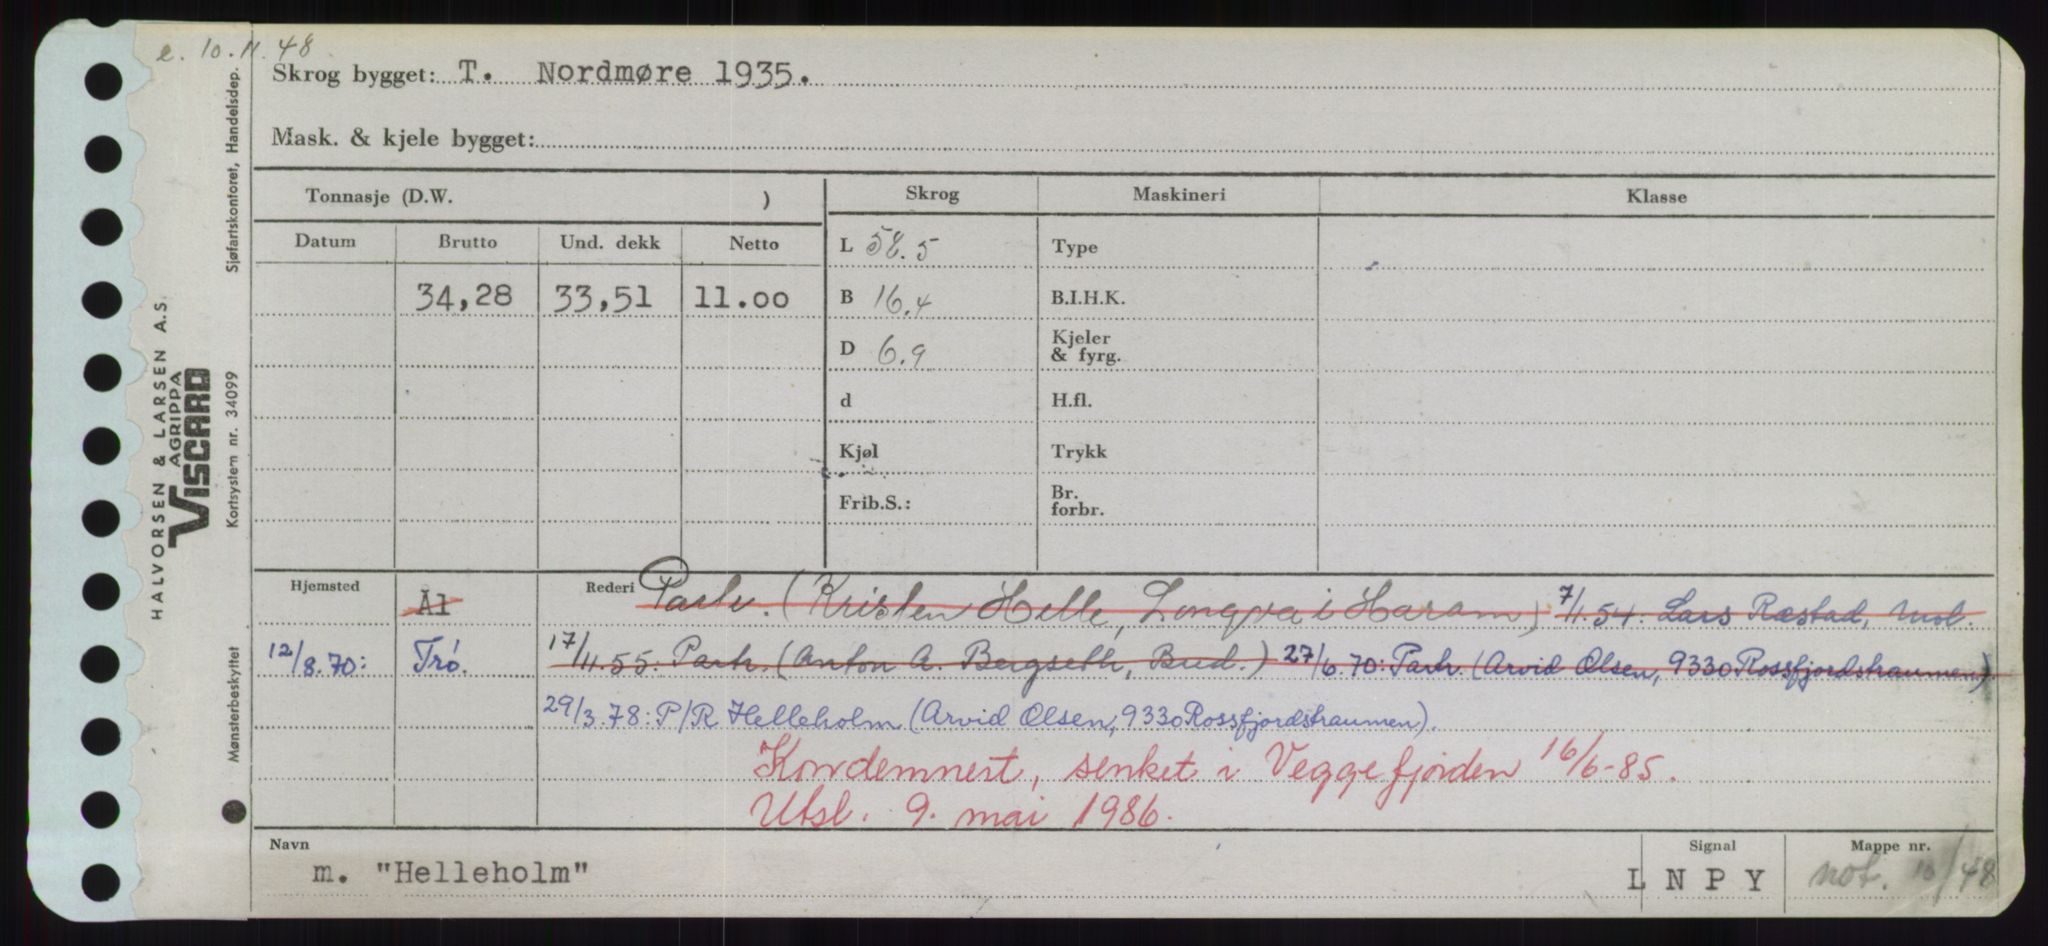 e. 10.11.48
Skrog bygget: T. Nordmøre 1935.
Mask. & kjele bygget:
Tonnasje (D.W. )
Skrog
Maskineri
Klasse
Datum
Brutto
Und. dekk
Netto
34,28
33,51
11.00
L 58.5
B 16.4
D 6.9
d
Kjøl
Frib.S.:
Type
B.I.H.K.
Kjeler
& fyrg.
H.fl.
Trykk
Br.
forbr.
Hjemsted
Ål
12/8.70: Trø.
Rederi Partr. (Kristen Helle, Longva i Haram) 7/11.54: Lars Ræstad, Mol.
17/11.55: Partr. (Anton A. Bergseth, Bud.) 27/6.70: Partr. (Arvid Olsen, 9330 Rossfjordstraumen)
29/3.78: P/R Helleholm (Arvid Olsen, 9330 Rossfjordstraumen).
Kondemnert, senket i Veggefjorden 16/6-85.
Utsl. 9. mai 1986.
Navn
m. "Helleholm"
Signal
L N P Y
Mappe nr.
not. 10/48
HALVORSEN & LARSEN A.S.
AGRIPPA
VISCARD
Sjøfartskontoret, Handelsdep.
Kortsystem nr. 34099
Mønsterbeskyttet